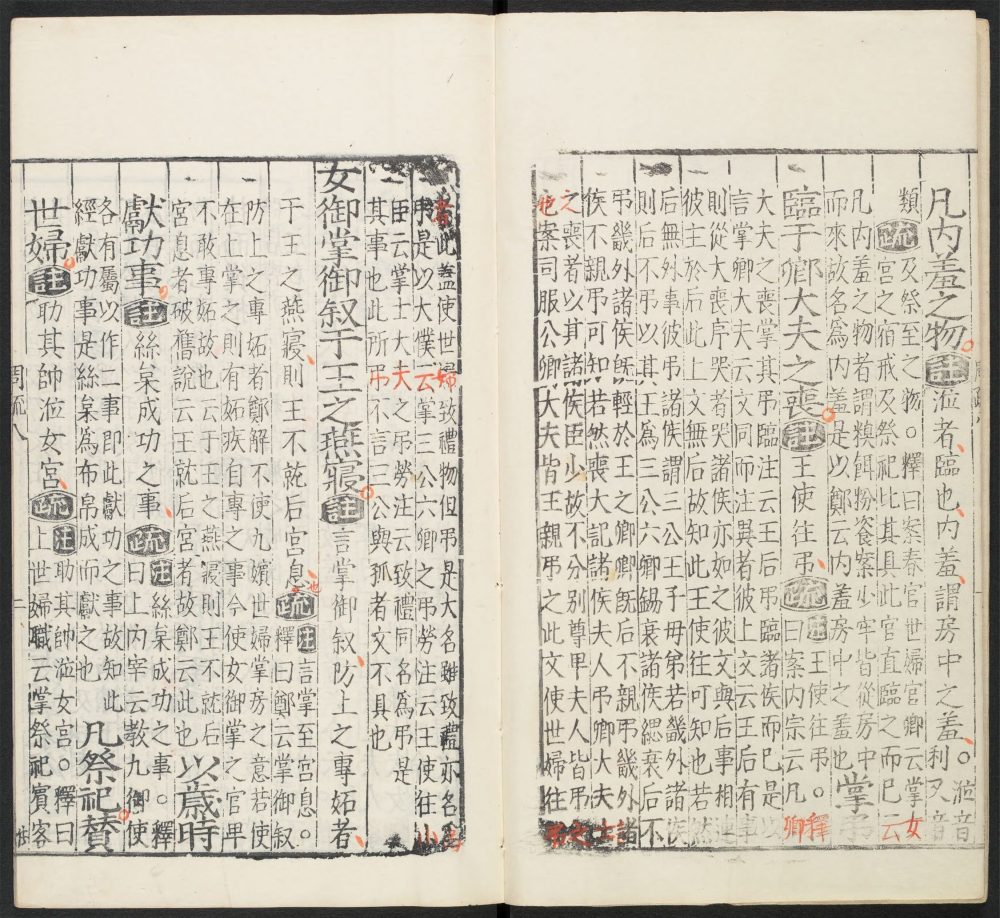 凡內羞之物。註涖者臨也內羞謂房中之羞。涖音
利又音
類疏及祭至之物。釋曰案春官世婦官卿云掌女
宮之宿戒及祭祀比其具此官直臨之而已云
凡內羞之物者謂糗餌粉餈案少牢皆從房中
而來故名爲內羞是以鄭云內羞房中之羞也掌弔
臨于卿大夫之喪。註王使往弔。疏注王使往弔。釋
曰案內宗云凡卿
大夫之喪掌其弔臨注云王后弔臨諸侯而已是以
言掌卿大夫云文同而注異者彼上文云王后有事
則從大喪序哭者哭諸侯亦如之彼文與后事相連
彼主於后此上文無后故知此王使往可知也若然
后無外事彼弔諸侯謂三公王子母弟若畿外諸侯
則后不弔以其王爲三公六卿錫衰諸侯緦衰后不
弔畿外諸侯既輕於王之卿卿既后不親弔畿外諸
侯不親弔可知若然喪大記諸侯夫人弔卿大夫士
之喪者以其諸侯臣少故不分別尊卑夫人皆弔之
也案司服公卿大夫皆王親弔之此文使世婦往弔
者此蓋使世婦致禮物但弔是大名雖致禮亦名爲
弔是以大僕云掌三公六卿之弔勞注云王使往小
臣云掌士大夫之弔勞注云致禮同名爲弔是
其事也此所弔不言三公與孤者文不具也
女御掌御叙于王之燕寢。註言掌御叙防上之專妬者
于王之燕寢則王不就后宮息也。疏注言掌至宮息。
釋曰鄭云掌御叙
防上之專妬者鄭解不使九嬪世婦掌房之意若使
在上掌之則有妬疾自專之事今使女御掌之官卑
不敢專妬故也云于王之燕寢則王不就后
宮息者破舊說云王就后宮者故鄭云此也以歲時
獻功事。註絲枲成功之事。疏注絲枲成功之事。釋
曰上內宰云教九御使
各有屬以作二事即此獻功之事故知此
經獻功事是絲枲爲布帛成而獻之也凡祭祀贊
世婦。註助其帥涖女宮。疏注助其帥涖女宮。釋曰
上世婦職云掌祭祀賓客
周疏八
二